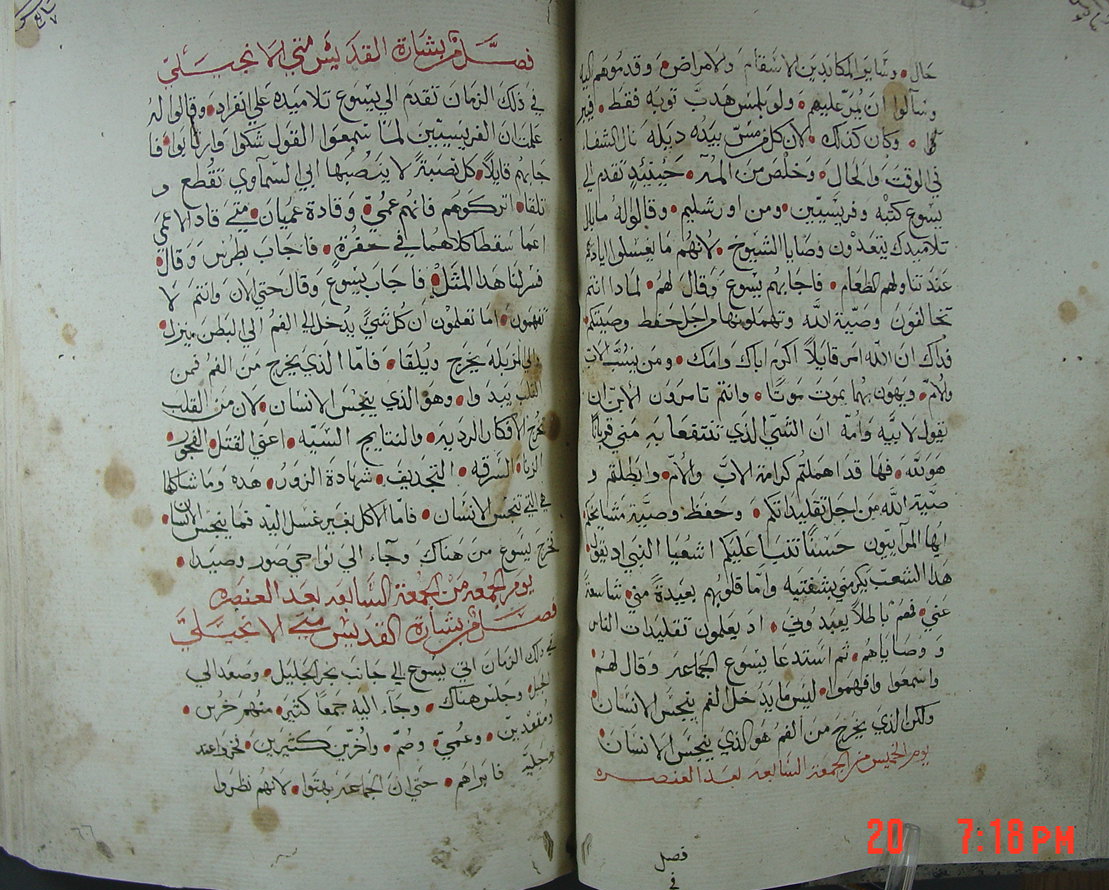 حال • وسائر المكابدين الاسقام والامراض • وقدموهم اليه
وسألوا ان يمر عليهم • ولو بلمس هدب ثوبه فقط • فمر
وكان كذلك • لان كل من مس بيده ديله نال الشفا
في الوقت والحال • وخلص من المه • حينئد تقدم الي
يسوع كتبه وفريسيين • ومن اورشليم • وقالوا له ما بال
تلاميدك يتعدون وصايا الشيوخ • لانهم ما يغسلوا اياديهم
عند تناولهم الطعام • فاجابهم يسوع وقال لهم • لمادا انتم
تخالفون وصية الله وتهملونها من اجل حفظ وصيتكم •
فداك ان الله امر قايلاً اكرم اباك وامك • ومن يشتم الاب
والام • ويهون بهما يموت موتًا • وانتم تامرون الابن ان
يقول لابيه وامه ان الشي الذي تنتفعا به مني قربانًا
هو لله • فها قد اهملتم كرامة الاب والام • وابطلتم و
صية الله من اجل تقليداتكم • وحفظ وصية مشايخكم
ايها المرآييون حسنًا تنبا عليكم اشعيا النبي اد يقول
هدا الشعب يكرمني بشفتيه واما قلوبهم بعيدة مني شاسعة
عني • فهم باطلاً يعبدوني • اد يعلمون تقليدات الناس
ووصاياهم • ثم استدعا يسوع الجماعه وقال لهم
واسمعوا وافهموا • ليس ما يدخل الفم ينجس الانسان •
ولكن الذي يخرج من الفم هو الذي ينجس الانسان
يوم الخميس من الجمعة السابعه بعد العنصره
فصل
في
فصل من بشارة القديس متي الانجيلي
في ذلك الزمان تقدم الي يسوع تلاميده علي انفراد • وقالوا له
علمت ان الفريسيين لما سمعوا القول شكوا وارتابوا • فا
جابهم قايلاً • كل نصبة لا ينصبها ابي السماوي تقطع و
تلقا • اتركوهم فانهم عمي • وقادة عميان • متي قاد الاعمي
اعما سقطا كلاهما في حفرة • فاجاب بطرس وقال
فسر لنا هدا المثل • فاجاب يسوع وقال حتي الان وانتم لا
تفهمون • اما تعلمون ان كل شيء يدخل الي الفم الي البطن ينزل •
والي المزبله يخرج ويلقا • فاما الذي يخرج من الفم فمن
القلب يبدوا • وهو الذي ينجس الانسان • لان من القلب
تخرج الافكار الرديه • والنتايج السيه • اعني القتل • الفجور •
الزنا • السرقه • التجديف • شهادة الزور • هده وما شاكلها
هي التي تنجس الانسان • فاما الاكل بغير غسل اليد فما ينجس الانسان •
فخرج يسوع من هناك وجاء الي نواحي صور وصيدا •
يوم الجمعه من الجمعة السابعه بعد العنصره
فصل من بشارة القديس متي الانجيلي
في ذلك الزمان اتي يسوع الي جانب بحر الجليل • وصعد الي
الجبل • وجلس هناك • وجاء اليه جمعًا كثير • منهم خرس •
ومقعدين • وعمي • وصم • واخرين كثيرين • فخروا عند
رجليه فابراهم • حتي ان الجماعه بهتوا • لانهم نظروا
٦٦
20 7:18 PM